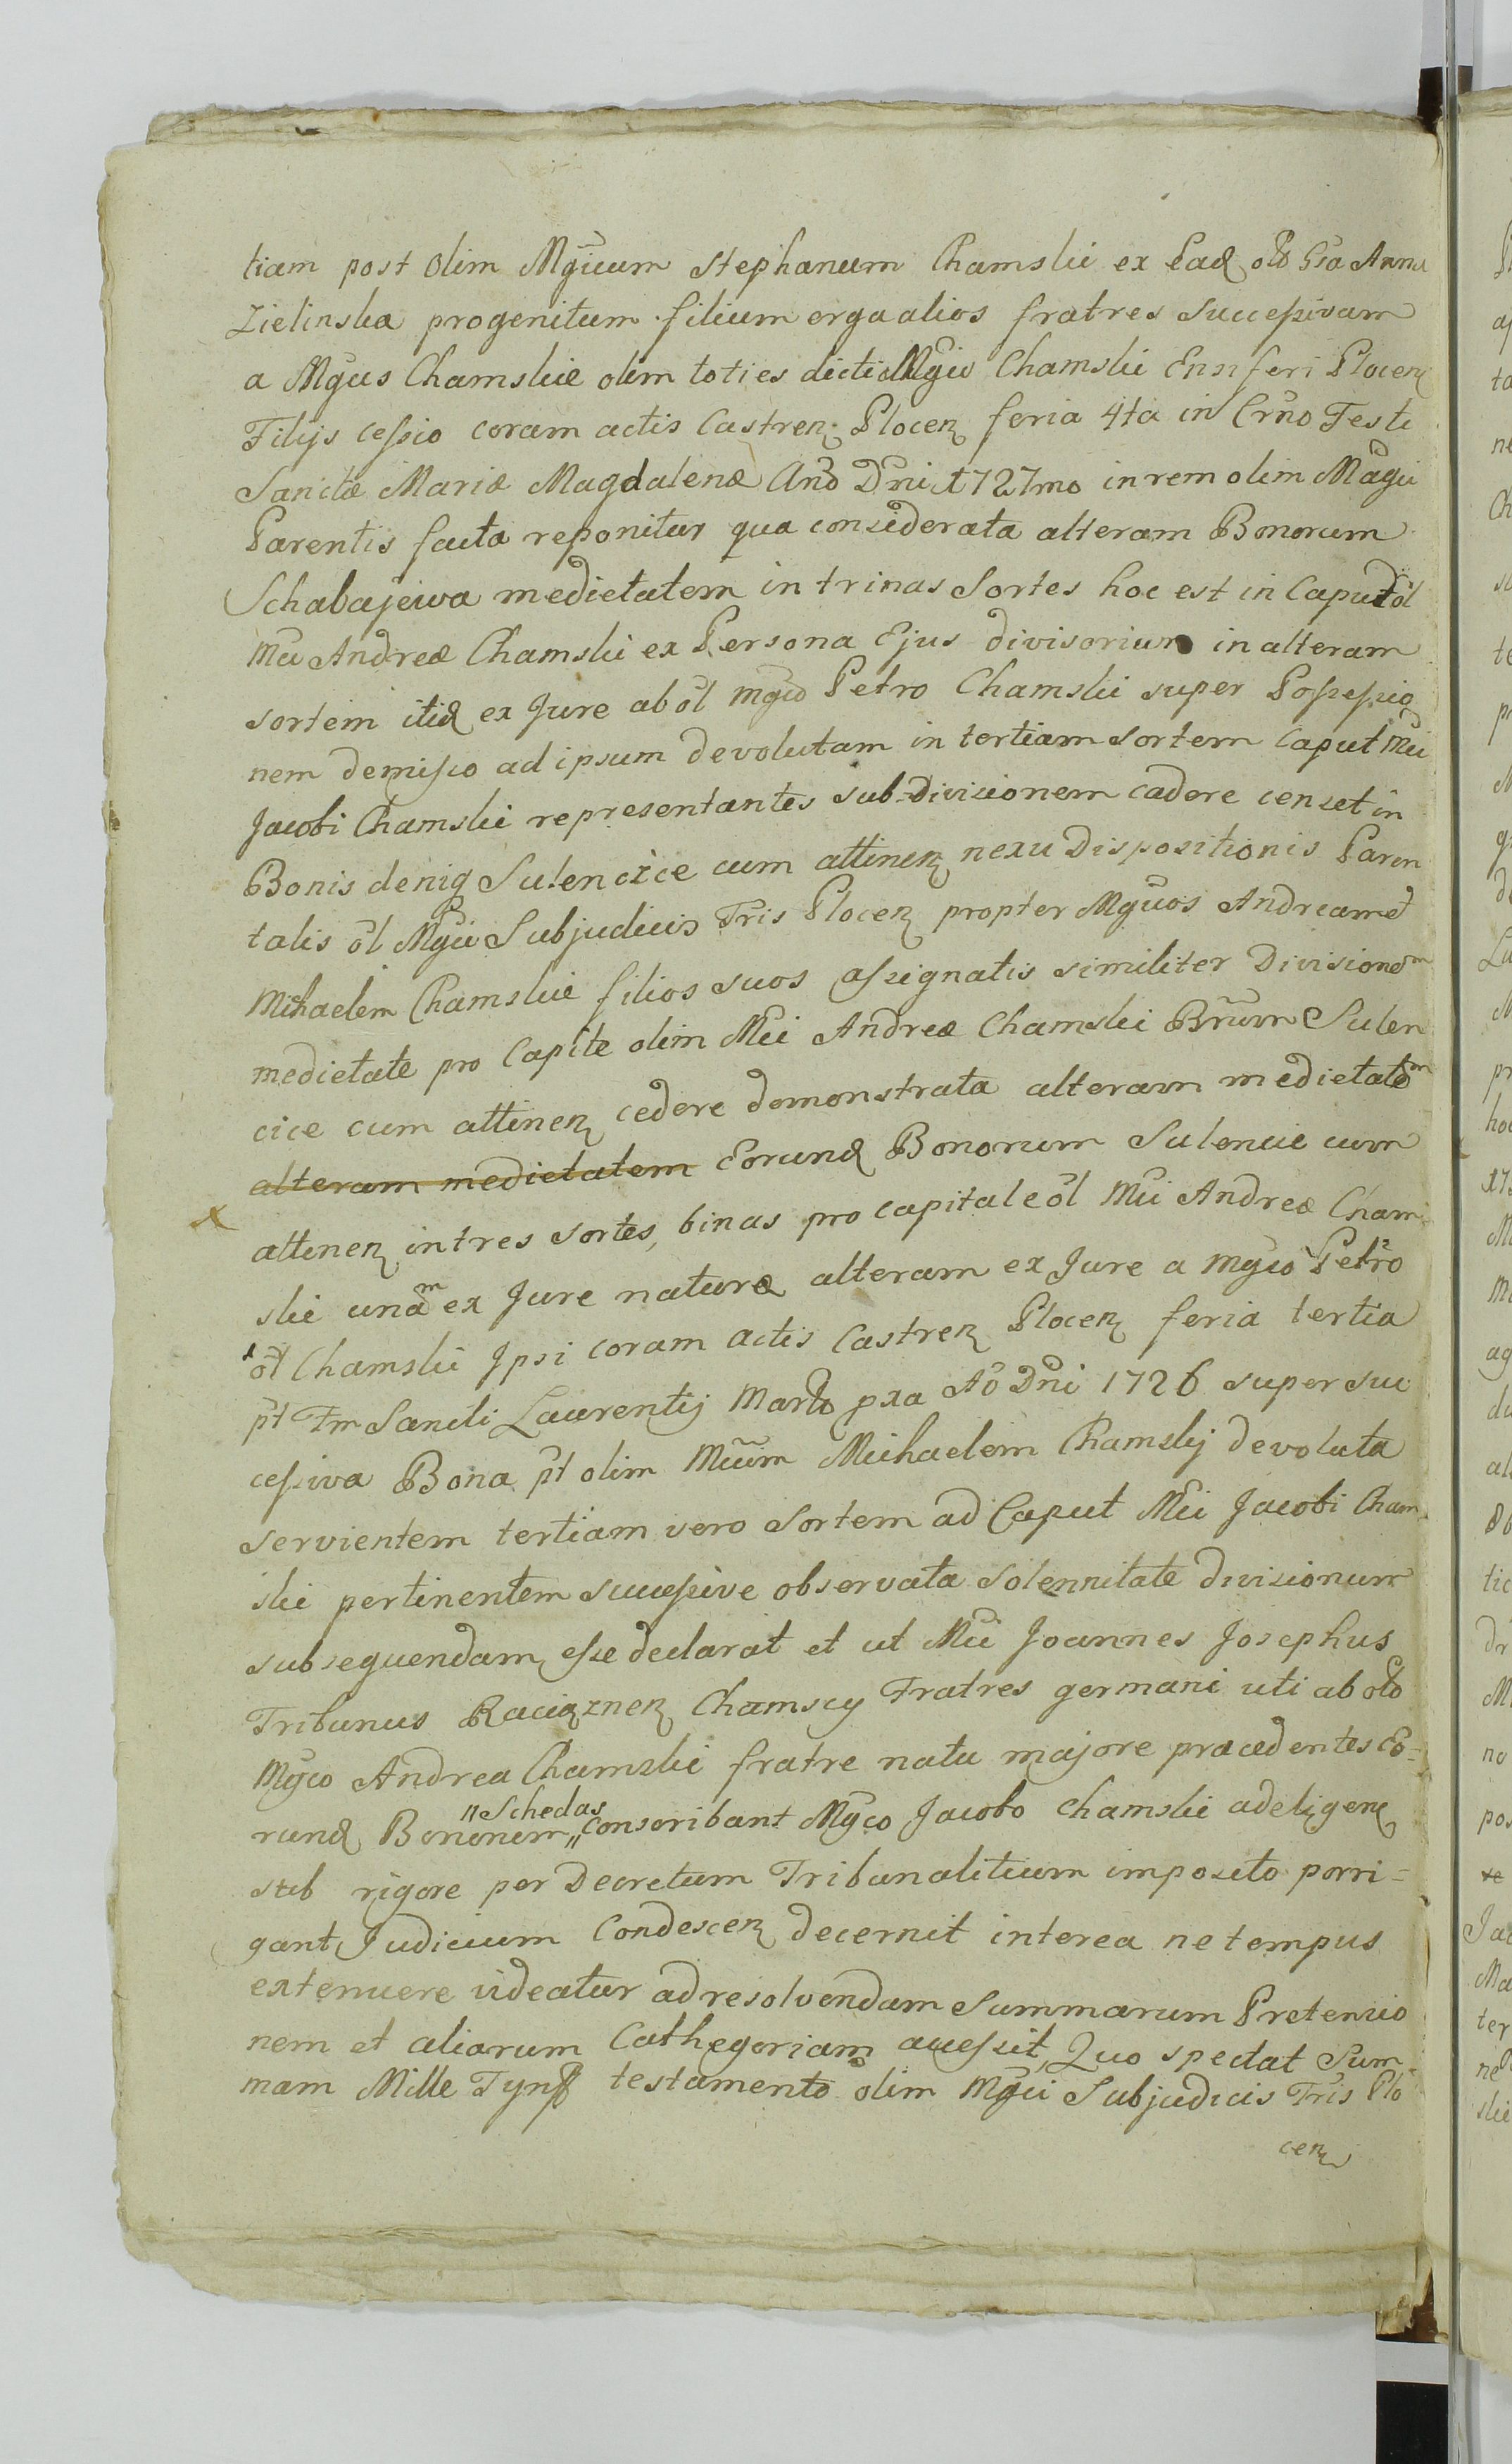 tiam post olim Mgñcum Stephanum Chamski ex Ead olo Gsa Anna
Zielinska progenitum filium erga alios fratres Successivam
a Mgcis Chamskie olim toties dicti Mgci Chamski Ensiferi Plocen
Filijs cessio coram actis Castren Plocen feria 4ta in Crño Festi
Sanctæ Mariæ Magdalenæ Año Dñi 1727mo in rem olim Magci
Parentis facta reponitur qua considerata alteram Bonorum
Schabajewa medietatem in trinas Sortes hoc est in Caput ol
Mci Andreæ Chamski ex Persona Ejus divisorium in alteram
sortem itid ex Jure ab ol Mgco Petro Chamski super Possessio
nem demisso ad ipsum devolutam in tertiam sortem Caput Mci
Jacobi Chamski representantes sub-divisionem cadere censet in
Bonis deniq Sulencice cum attinen nexu Dispositionis Paren
talis ol Mgci Subjudicis Tris Plocen propter Mgcos Andream et
Michaelem Chamskie filios suos assignatis similiter Divisionem
medietate pro Capite olim Mci Andreæ Chamski Brum Sulen
cice cum attinen cedere demonstrata alteram medietatem
alteram medietatem Eorund Bonorum Sulencie cum
attinen in tres sortes, binas pro capitale ol Mci Andreæ Cham
ski unam ex Jure naturæ alteram ex Jure a Mgco Petro
ol Chamski Ipsi coram actis Castren Plocen feria tertia
pt Fm Sancti Laurentij Martis pxa Ao Dni 1726 super suc
cessiva Bona pt olim Mcum Michaelem Chamskij devoluta
servientem tertiam vero Sortem ad Caput Mci Jacobi Cham
ski pertinentem successive observata solennitate divisionum
subsequendam esse declarat et ut Mci Joannes Josephus
Tribunus Raciąznen Chamscy Fratres germani uti ab olo
Mgco Andrea Chamski fratre natu majore præcedentes Eo=
rund Bononem "Schedas" conscribant Mgco Jacobo Chamski adeligen
sub rigore per Decretum Tribunalitium imposito porri=
gant Judicium Condescen decernit interea ne tempus
extenuere videatur ad resolvendam Summarum Pretensio
nem et aliarum Cathegoriam accessit, Quo spectat Sum
mam Mille Tynf testamento olim Mgci Subjudicis Tris Plo
cen